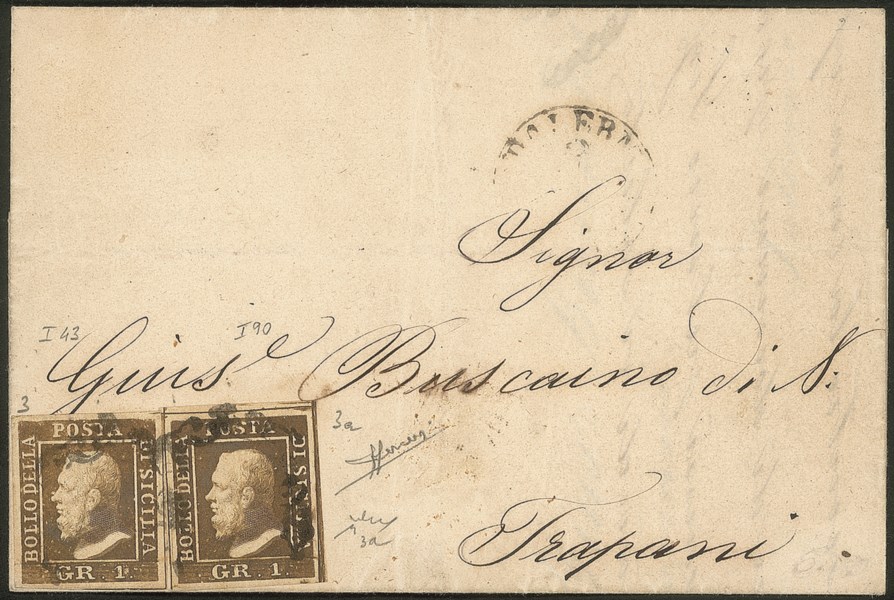 PALER
Signor
I 43 I 90
Guis.e Buscaino di N:
3
3a
BOLLO DELLA POSTA DI SICILIA
GR. 1.
BOLLO DELLA POSTA DI SICILIA
GR. 1.
3a
Trapani